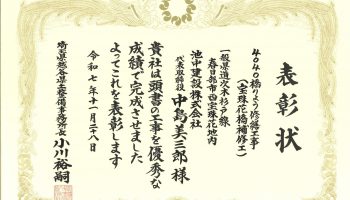 表彰状
4040橋りょう修繕工事
(宝珠花橋補修工)
一般県道次木杉戸線
春日部市西宝珠花地内
池中建設株式会社
代表取締役 中島美三郎 様
貴社は頭書の工事を優秀な
成績で完成させました
よってこれを表彰します
令和七年十一月二十八日
埼玉県越谷県土整備事務所長 小川裕嗣